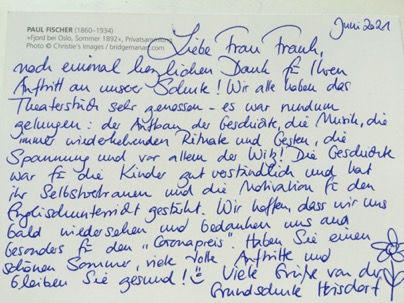 PAUL FISCHER (1860–1934)
»Fjord bei Oslo, Sommer 1892«, Privatsammlung
Photo © Christie's Images / bridgemanart.com
Juni 2021
Liebe Frau Frank,
noch einmal herzlichen Dank für Ihren
Auftritt an unserer Schule! Wir alle haben das
Theaterstück sehr genossen - es war rundum
gelungen: der Aufbau der Geschichte, die Musik, die
immer wiederkehrenden Rituale und Gesten, die
Spannung und vor allem der Witz! Die Geschichte
war für die Kinder gut verständlich und hat
ihr Selbstvertrauen und die Motivation für den
Englischunterricht gestärkt. Wir hoffen, dass wir uns
bald wiedersehen und bedanken uns auch
besonders für den "Coronapreis". Haben Sie einen
schönen Sommer, viele tolle Auftritte und
bleiben Sie gesund!
Viele Grüße von der
Grundschule Heisdorf